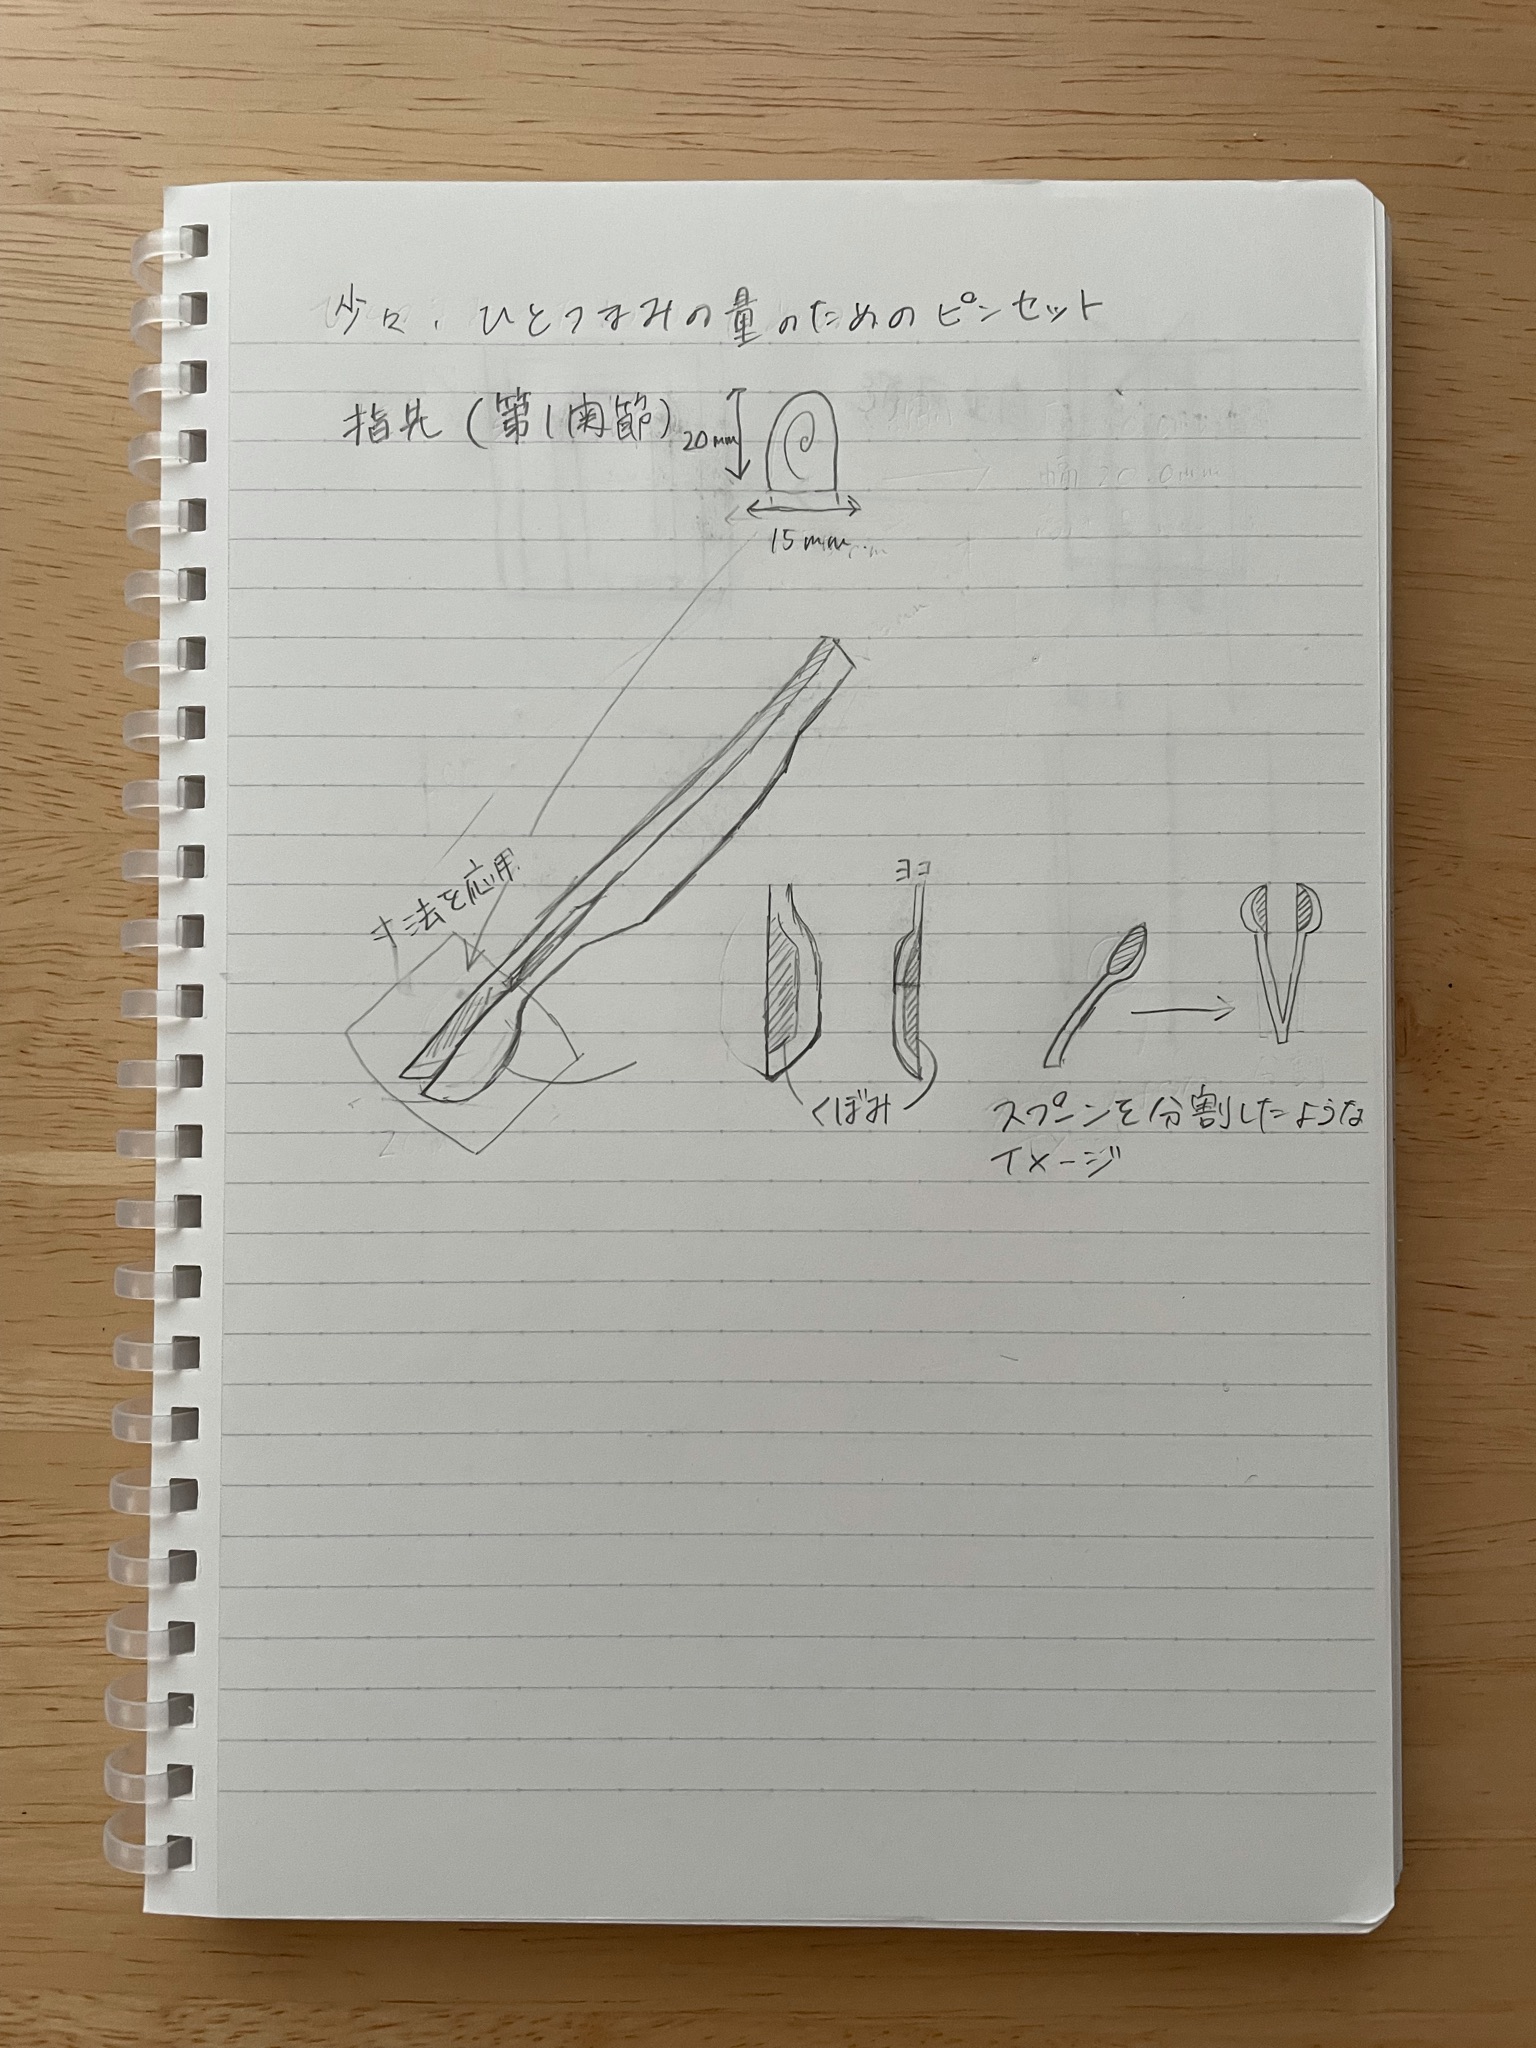 少々、ひとつまみの量のためのピンセット
指先(第1関節)
20mm
15mm
寸法を応用
ヨコ
くぼみ
スプーンを分割したような
イメージ